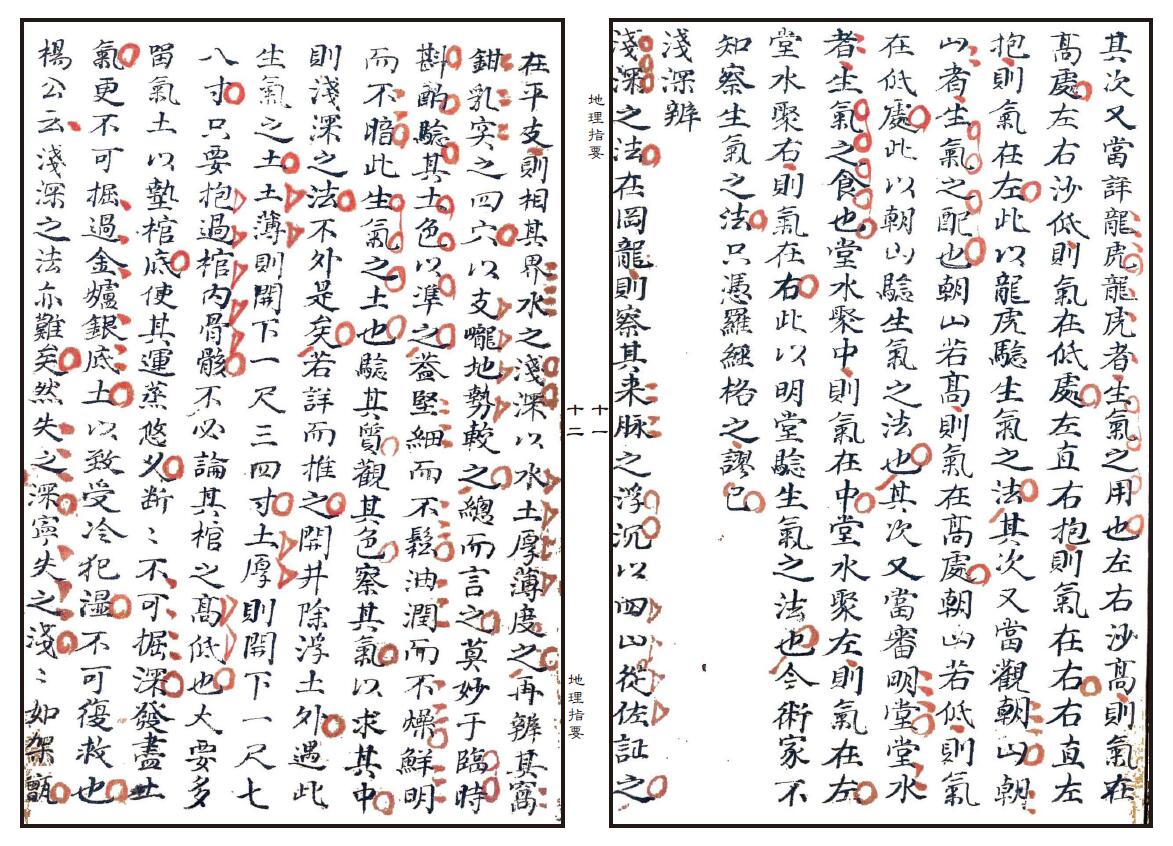 其次又當詳龍虎龍虎者生氣之用也左右沙高則氣在
高處左右沙低則氣在低處左直右抱則氣在右右直左
抱則氣在左此以龍虎驗生氣之法其次又當觀朝山朝
山者生氣之配也朝山若高則氣在高處朝山若低則氣
在低處此以朝山驗生氣之法也其次又當審明堂堂水
者生氣之食也堂水聚中則氣在中堂水聚左則氣在左
堂水聚右則氣在右此以明堂驗生氣之法也今術家不
知察生氣之法只憑羅經格之謬已
淺深辨
淺深之法在岡龍則察其来脉之浮沉以四山從佐証之
地理指要
十一
十二
地理指要
在平支則相其界水之淺深以水土厚薄度之再辨其窩
鉗乳突之四穴以支壠地勢較之總而言之莫妙于臨時
斟酌驗其土色以準之蓋堅細而不鬆油潤而不燥鮮明
而不暗此生氣之土也驗其質觀其色察其氣以求其中
則淺深之法不外是矣若詳而推之開井除浮土外遇此
生氣之土土薄則開下一尺三四寸土厚則開下一尺七
八寸只要抱過棺内骨骸不必論其棺之高低也大要多
留氣土以墊棺底使其運蒸悠久断〻不可掘深發盡土
氣更不可掘過金爐銀底土以致受冷犯濕不可復救也
楊公云淺深之法亦難矣然失之深寧失之淺〻如架甑